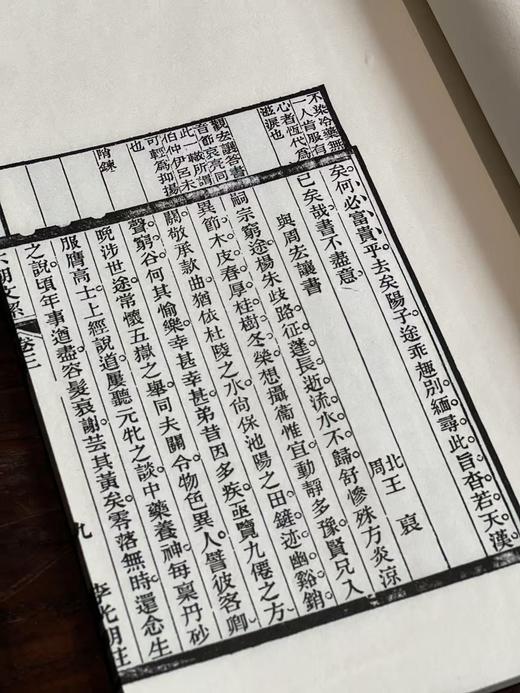 不染冷藥無
一人肯服有
心者恆代為
滋淚也
觀宏讓答書
音節哀亮同
此一轍所謂
伯仲伊呂未
可輕為抑揚
也
鍊
矣何必富貴乎去矣陽子途乖趣別緬尋此旨杳若天漢
已矣哉書不盡意
與周宏讓書
北周王褒
嗣宗窮途楊朱歧路征蓬長逝流水不歸舒慘殊方炎涼
異節木皮春厚桂樹冬榮想攝衞惟宜動靜多豫賢兄入
關敬承款曲猶依杜陵之水尚保池陽之田鏟迹幽谿銷
聲窮谷何其愉樂幸甚幸甚弟昔因多疾亟覽九僊之方
晚涉世途常懷五嶽之舉同夫關令物色異人譬彼客卿
服膺高士上經說道屢聽元牝之談中藥養神每稟丹砂
之說頃年事遒盡容髮衰謝芸其黃矣零落無時還念生
六朝文絜 卷三
九
李光明莊